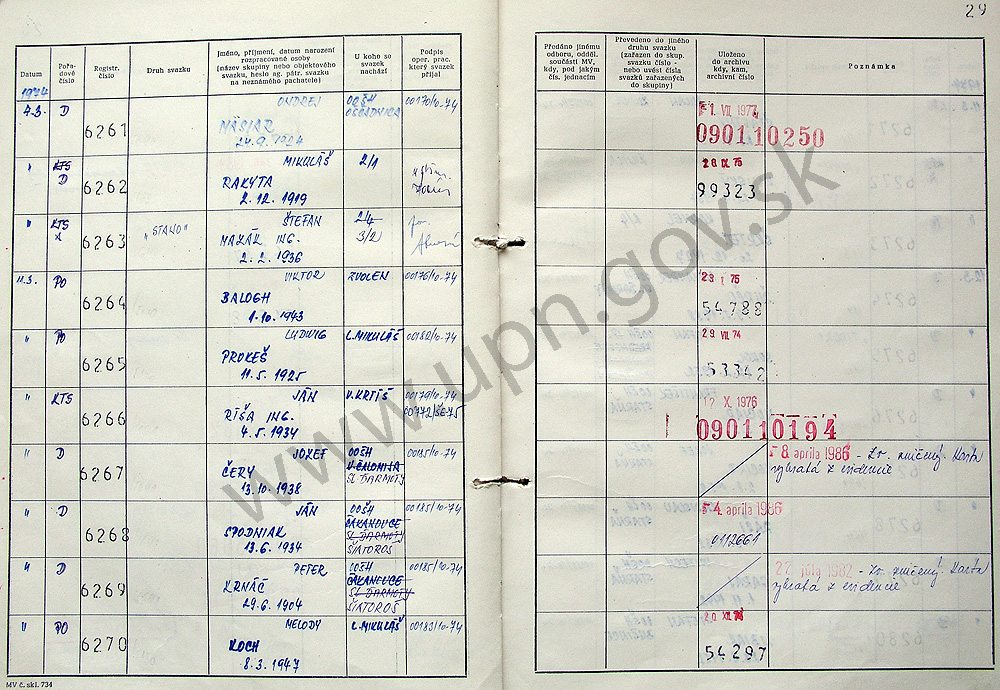 29
Datum
Pořadové číslo
Registr. číslo
Druh svazku
Jméno, příjmení, datum narození
rozpracované osoby
(název skupiny nebo objektového
svazku, heslo ag. pátr. svazku
na neznámého pachatele)
U koho se
svazek
nachází
Podpis
oper. prac.
který svazek
přijal
Předáno jinému
odboru, odděl.
součásti MV,
kdy, pod jakým
čís. jednacím
Převedeno do jiného
druhu svazku
(zařazen do skup.
svazku číslo -
nebo uvést čísla
svazků zařazených
do skupiny)
Uloženo
do archivu
kdy, kam,
archivní číslo
Poznámka
1974
ONDREJ OOŠH 00170/10-74
4.3. D OŠČADNICA 1. VII 1977
6261 MÁSIAR 090110250
24.9.1924
" KTS MIKULÁŠ 2/1 28 IX 75
D
6262 RAKYTA 99323
2.12.1919
" KTS ŠTEFAN 2/4
6263 "STANO" MAZÁK ING. 3/2
2.2.1936
11.3. PO VIKTOR ZVOLEN 00176/10-74 23 I 75
6264 BALOGH 54788
1.10.1943
" PO LUDWIG L.MIKULÁŠ 00182/10-74 29 VII 74
6265 PROKEŠ 53342
11.5.1925
" KTS JÁN V.KRTÍŠ 00179/10-74 X 1976
6266 RÍŠA ING. 090110194
4.5.1934
" D JOZEF OOŠH 00185/10-74 8 apríla 1986 - Zv. zničený. Karta
6267 ČERY vybratá z evidencie
13.10.1938 ŠĽ. ĎARMOTY
" D JÁN OOŠH 00185/10-74 4 apríla 1986
6268 SPODNIAK ČAKANOVCE
13.6.1934 ŠĽ. ĎARMOTY
ŠIATOROŠ
0112661
" D PETER OOŠH 00185/10-74 22 júla 1982 - Zv. zničený. Karta
6269 KRNÁČ ČAKANOVCE vybratá z evidencie
29.6.1904 ŠĽ. ĎARMOTY
ŠIATOROŠ
" PO MELODY L.MIKULÁŠ 00183/10-74 20 XII 74
6270 KOCH 54297
8.3.1947
MV č. skl. 734
www.upn.gov.sk